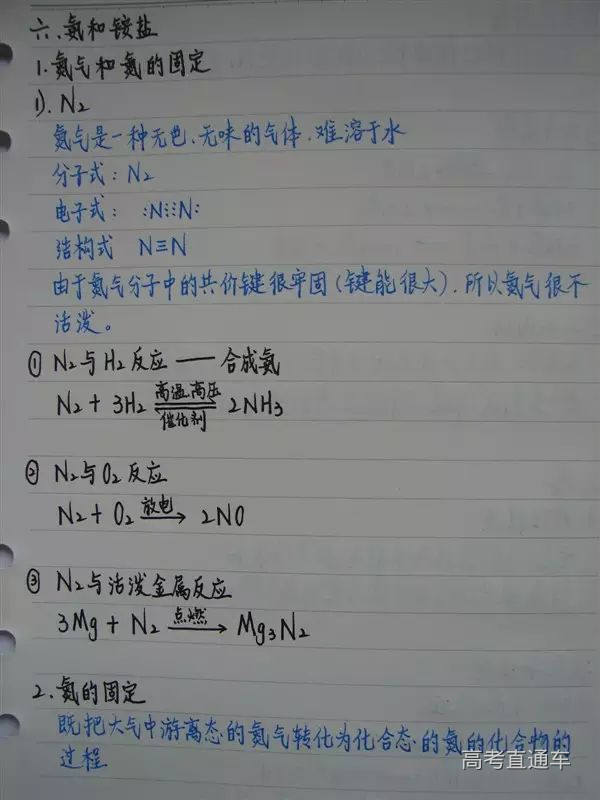 六、氨和铵盐
1. 氮气和氮的固定
1). N₂
氮气是一种无色、无味的气体.难溶于水
分子式：N₂
电子式：:N⋮⋮N:
结构式 N≡N
由于氮气分子中的共价键很牢固(键能很大).所以氮气很不
活泼。
① N₂与H₂反应 —— 合成氨
高温高压
N₂ + 3H₂ ⇌ 2NH₃
催化剂
② N₂与O₂反应
放电
N₂ + O₂ → 2NO
③ N₂与活泼金属反应
点燃
3Mg + N₂ → Mg₃N₂
2. 氮的固定
既把大气中游离态的氮气转化为化合态的氮的化合物的
过程
高考直通车